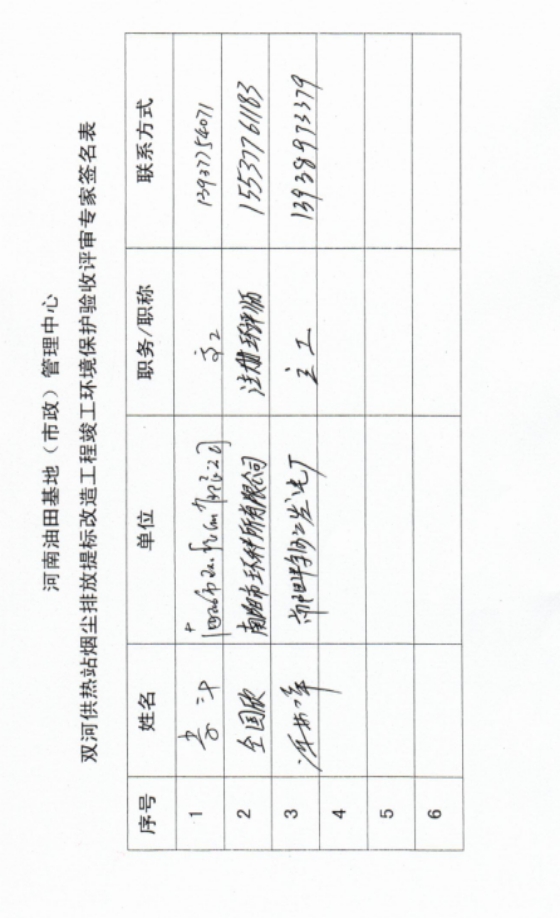 河南油田基地（市政）管理中心
双河供热站烟尘排放提标改造工程竣工环境保护验收评审专家签名表
序号 姓名 单位 职务/职称 联系方式
1 高工 13937754071
2 全国欣 南阳市环科所有限公司 注册环评师 15537761183
3 主工 13938973379
4
5
6